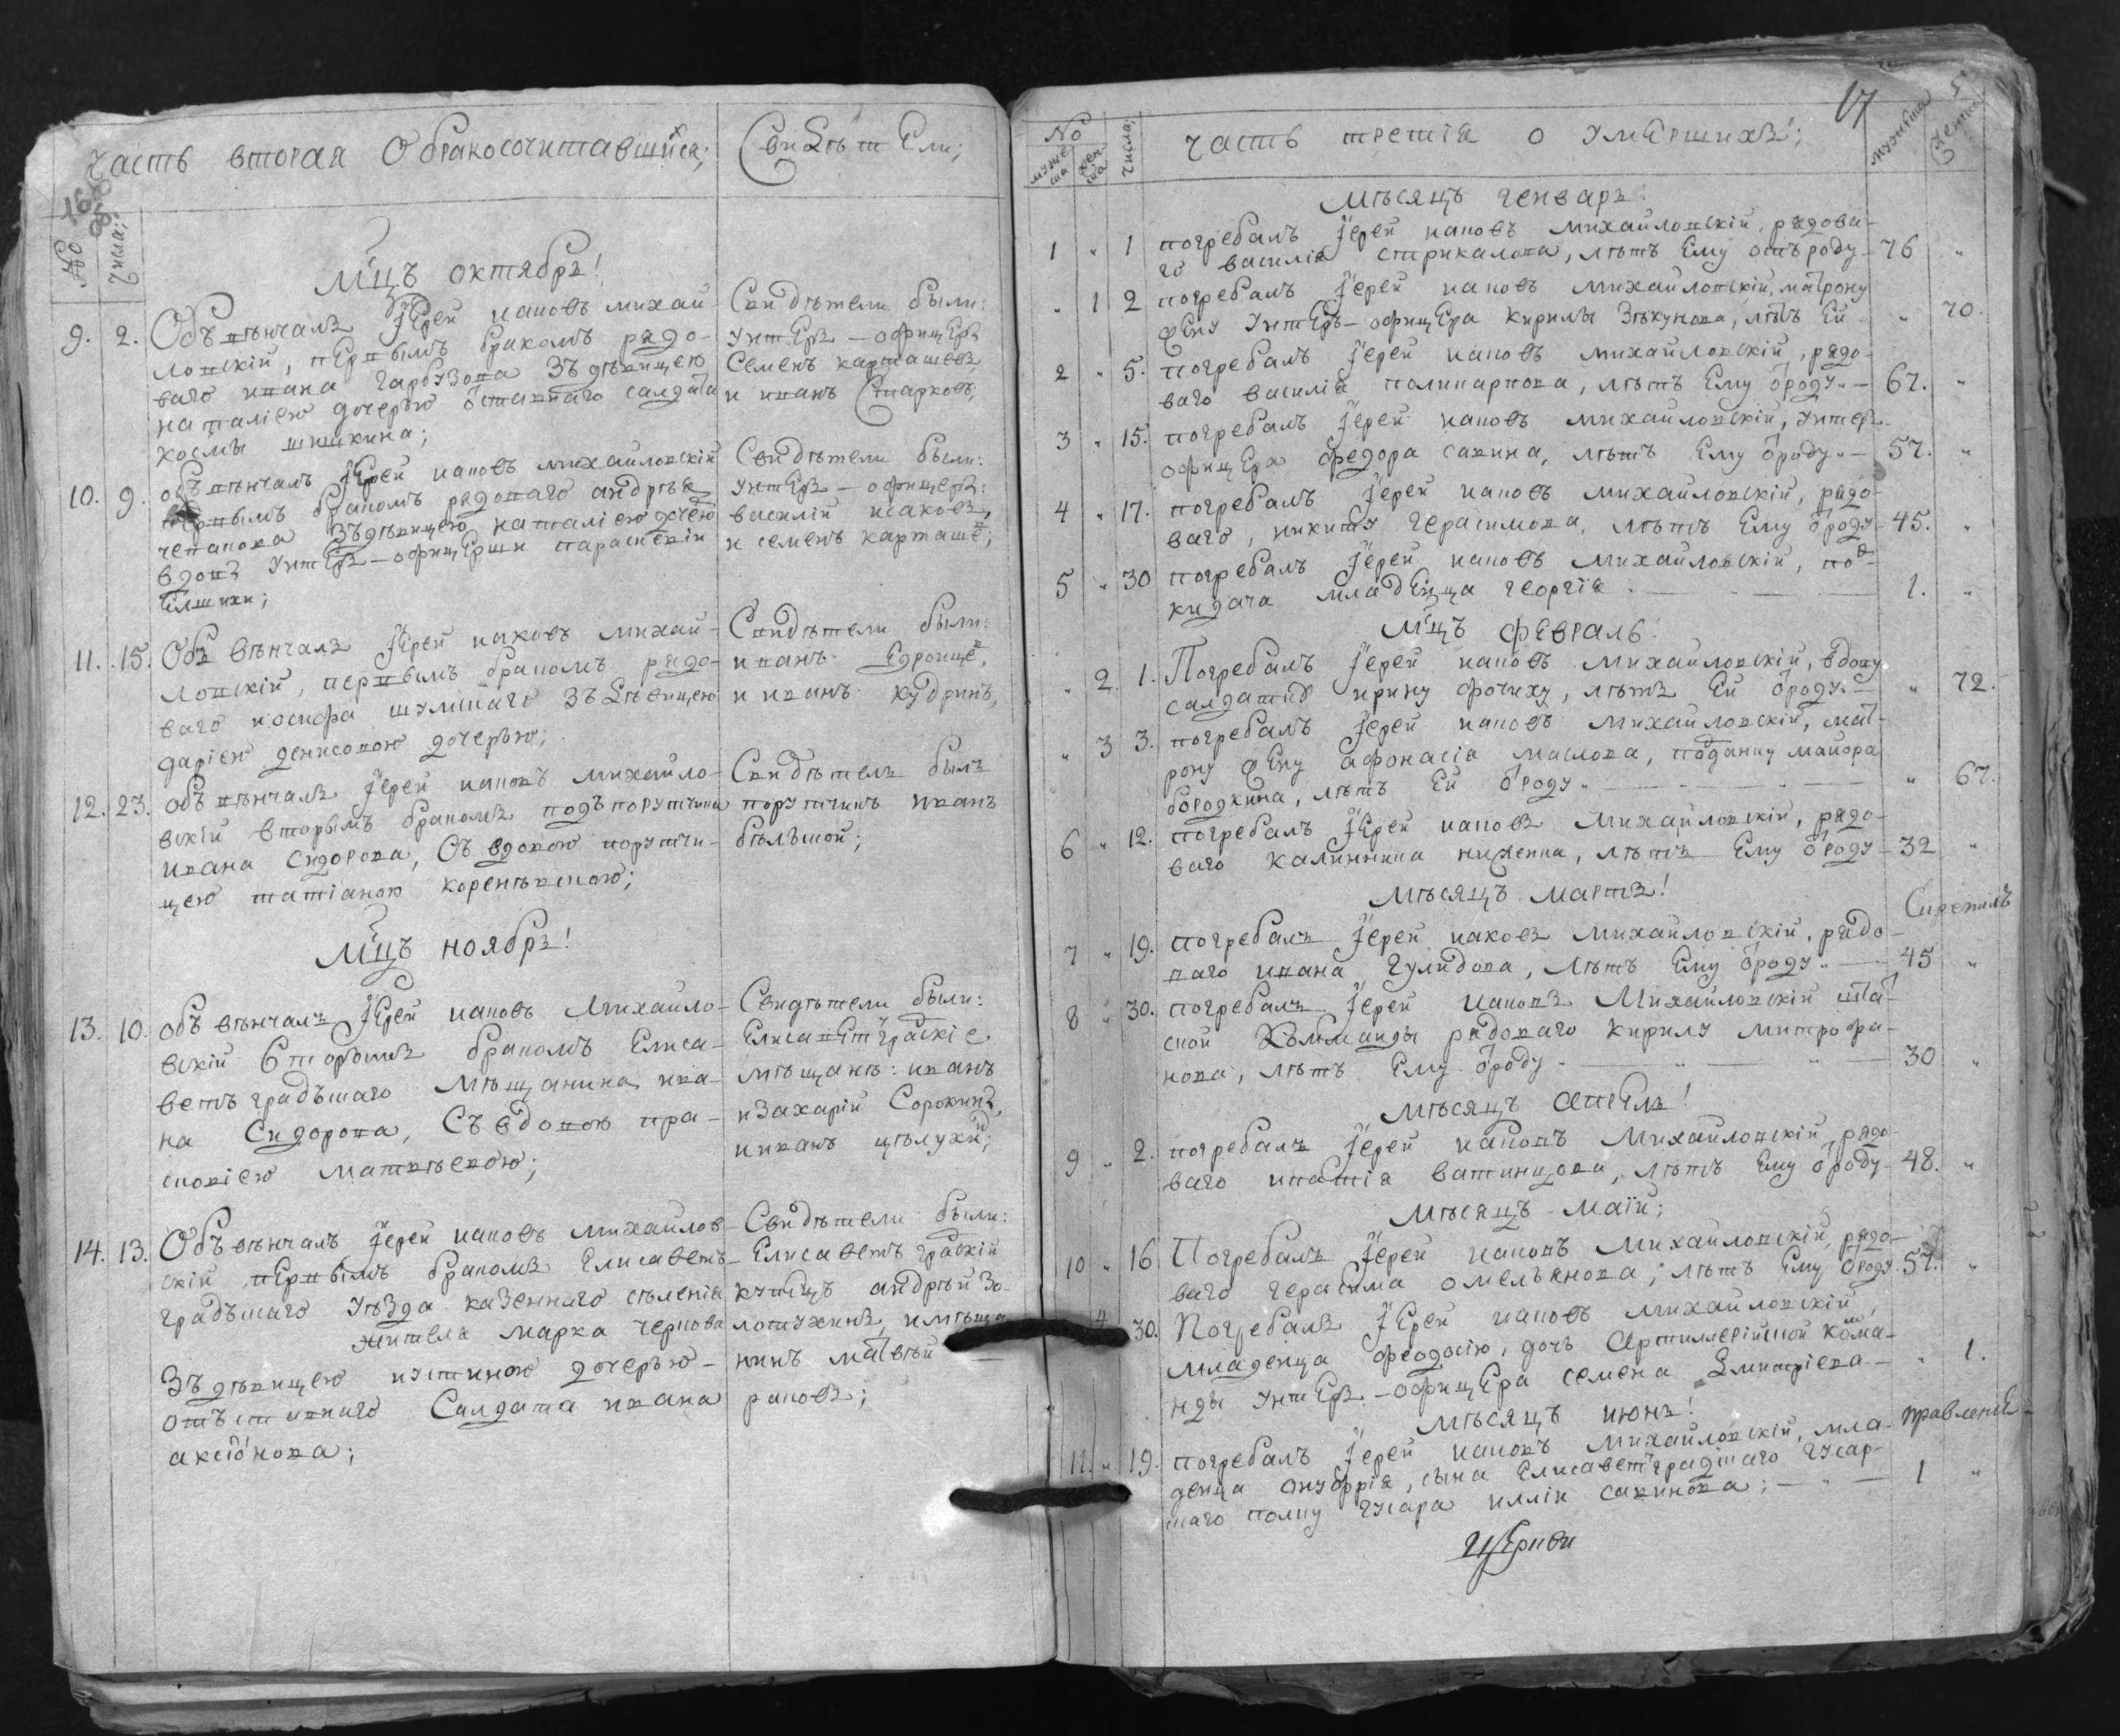 Часть вторая о бракосочитавшихся;
Свидѣтели;
№
числа;
Мц҃ъ октябрь!
9. 2. Объвѣнчалъ Іерей иаковъ михай-
ловскій, первымъ бракомъ рядо-
ваго ивана гарбузова зъ дѣвицею
наталіею дочерью оставнаго салдата
космы шишкина;
Свидѣтели были:
унтеръ-офицеръ
Семенъ карташевъ,
и иванъ Старковъ,
10. 9. объвѣнчалъ Іерей иаковъ михайловскій
первымъ бракомъ рядоваго андрѣя
чепанова зъ дѣвицею наталіею дочею
вдовы унтеръ-офицерши параскевіи
Свидѣтели были:
унтеръ-офицеръ:
василій исаковъ,
и семенъ карташе;
11. 15. Объвѣнчалъ Іерей иаковъ михай-
ловскій, первымъ бракомъ рядо-
ваго иосифа шулшаго зъ дѣвицею
даріею денисовою дочерью;
Свидѣтели были:
иванъ
и иванъ кудринъ,
12. 23. объвѣнчалъ Іерей иаковъ михайло-
вскій вторымъ бракомъ подъпорутчика
ивана сидорова, съ вдовою порутчи-
цею татіаною коренѣвскою;
Свидѣтель былъ
порутчикъ иванъ
бѣлшой;
Мц҃ъ ноябрь!
13. 10. объвѣнчалъ Іерей иаковъ михайло-
вскій вторымъ бракомъ Елиса-
ветъградъшаго мѣщанина ива-
на Сидорова, Съ вдовою пра-
сковіею матвѣевою;
Свидѣтели были:
Елисаветъградскіе
мѣщане: иванъ
и захарій Сорокинъ,
и иванъ цѣлухи;
14. 13. Объвѣнчалъ Іерей иаковъ михайлов-
скій первымъ бракомъ Елисаветъ-
градъшаго уѣзда казеннаго селенія
жителя марка чернова
зъ дѣвицею устиною дочерью-
отъставнаго Салдата ивана
аксіонова;
Свидѣтели были:
Елисаветъградскій
купецъ андрѣй зо-
лотухинъ, и мѣща-
нинъ матвѣй
раковъ;
17
№
мужеска
женска
числа;
Часть третія о умершихъ;
мужеска
женска
мѣсяцъ генварь!
1 " 1 погребалъ Іерей иаковъ михайловскій, рядова-
го василія стрикалова, лѣтъ Ему отъ роду 76 "
" 1 2 погребалъ Іерей иаковъ михайловскій, матрону
жену унтеръ-офицера кирилы зѣкунова, лѣтъ Ей " 70.
2 " 5. погребалъ Іерей иаковъ михайловскій, рядо-
ваго василія поликарпова, лѣтъ Ему ѿроду 67. "
3 " 15. погребалъ Іерей иаковъ михайловскій, унтеръ
офицера федора савина, лѣтъ Ему ѿроду 57. "
4 " 17. погребалъ Іерей иаковъ михайловскій, рядо-
ваго, никиту герасимова, лѣтъ Ему ѿроду 45. "
5 " 30 погребалъ Іерей иаковъ михайловскій, под-
кидача младенца георгія 1. "
Мц҃ъ февраль!
" 2. 1. Погребалъ Іерей иаковъ михайловскій, вдову
салдатку ирину фочиху, лѣтъ Ей ѿроду " 72.
" 3 3. погребалъ Іерей иаковъ михайловскій, мат-
рону жену афонасія маслова, поданну майора
бородкина, лѣтъ Ей ѿроду " 67.
6 " 12. погребалъ Іерей иаковъ михайловскій, рядо-
ваго калинника, лѣтъ Ему ѿроду 32 "
мѣсяцъ мартъ!
Скрепилъ
7 " 19. погребалъ Іерей иаковъ михайловскій, рядо-
ваго ивана гулидова, лѣтъ Ему ѿроду 45 "
8 " 30. погребалъ Іерей иаковъ михайловскій штат-
ской комманды рядоваго кирилу митрофа-
нова, лѣтъ Ему ѿроду 30 "
мѣсяцъ апрель!
9 " 2. погребалъ Іерей иаковъ михайловскій, рядо-
ваго ипатія ватинцова, лѣтъ Ему ѿроду 48. "
мѣсяцъ маій;
10 " 16 Погребалъ Іерей иаковъ михайловскій, рядо-
ваго герасима омельянова; лѣтъ Ему ѿроду 57. "
4 30. Погребалъ Іерей иаковъ михайловскій,
младенца феодосію, дочь артиллерійской кома-
нды унтеръ-офицера семена дмитріева " 1.
мѣсяцъ июнь!
правленія
11. " 19. погребалъ Іерей иаковъ михайловскій, мла-
денца онуфрія, сына Елисаветъградшаго гусар-
шаго полку гусара иліи савинова; 1 "